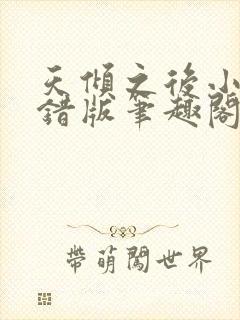 天傾之後小
錯版筆趣閣
帶萌闖世界